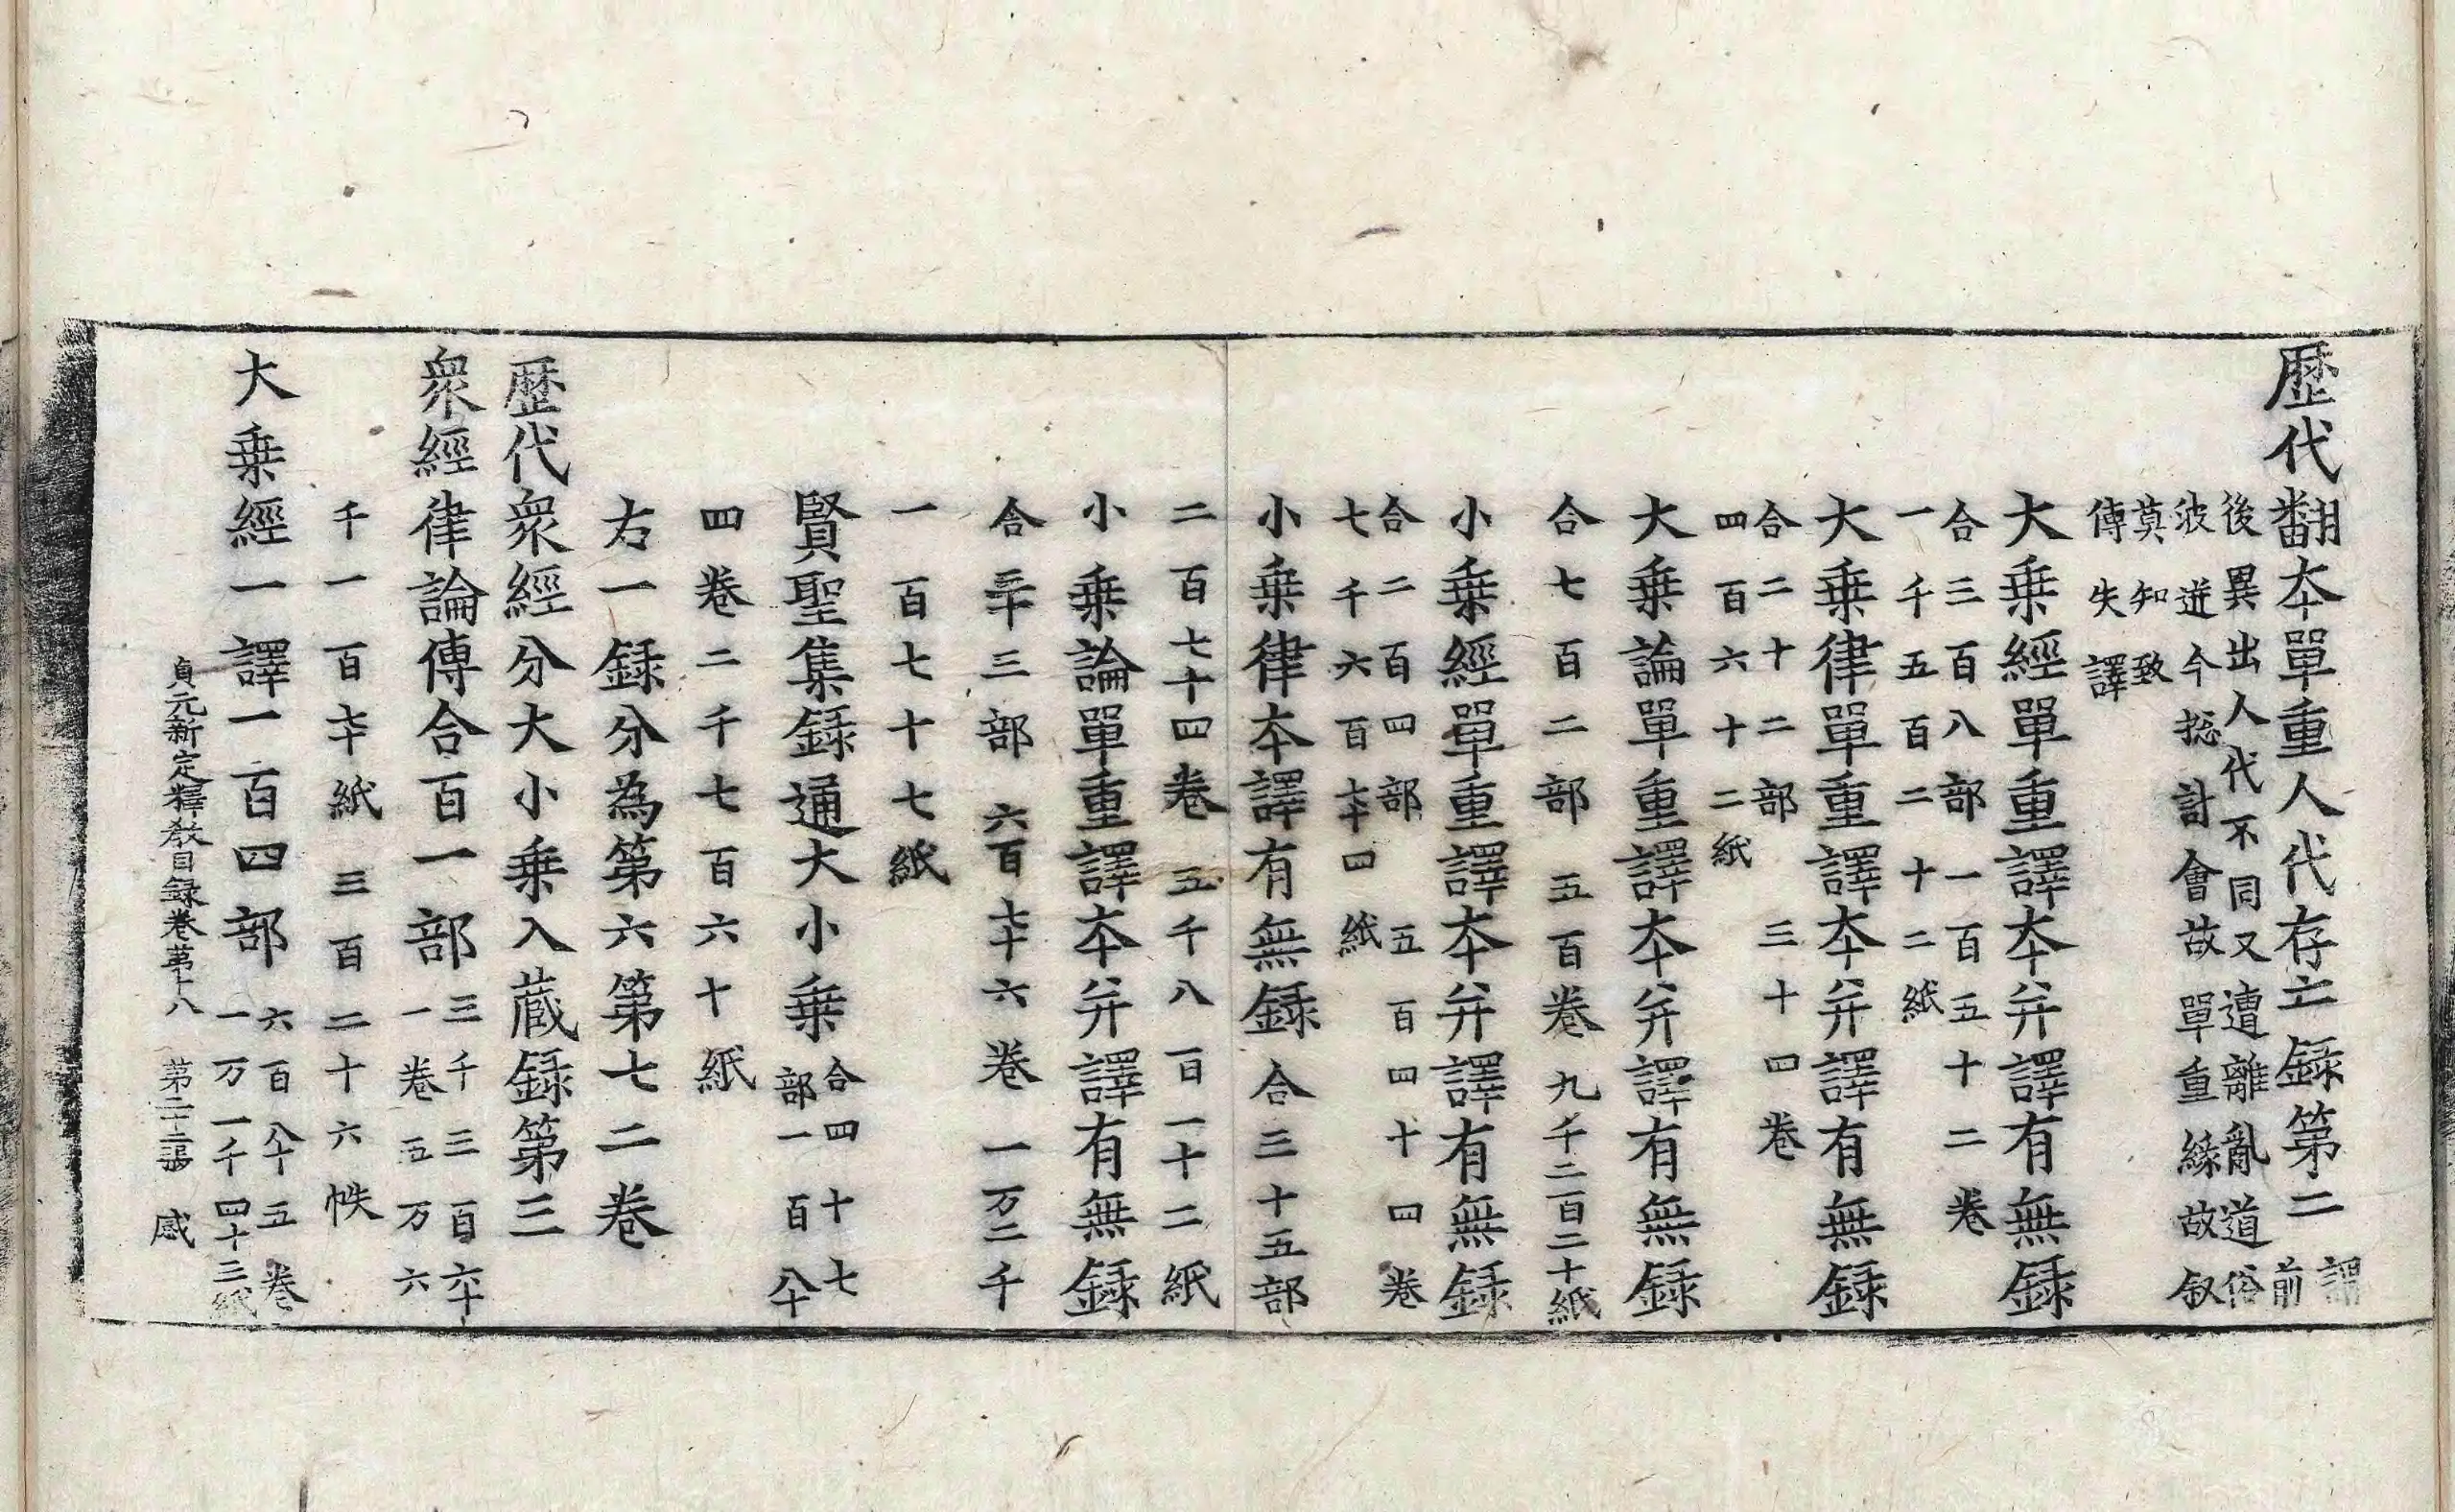 歷代翻夲單重人代存亡錄第二謂前
後異出人代不同又遭離亂道俗
波迸今捴計會故單重緣故叙
莫知致
傳失譯
大乗經單重譯夲并譯有無錄
合三百八部一百五十二卷
一千五百二十二紙
大乗律單重譯夲并譯有無錄
合二十二部三十四卷
四百六十二紙
大乗論單重譯夲并譯有無錄
合七百二部五百卷九千二百二十紙
小乗經單重譯夲并譯有無錄
合二百四部五百四十四卷
七千六百七十四紙
小乗律夲譯有無錄合三十五部
二百七十四卷五千八百一十二紙
小乗論單重譯夲并譯有無錄
合三十三部六百七十六卷一万二千
一百七十七紙
賢聖集錄通大小乗合四十七部一百八十
四卷二千七百六十紙
右一錄分為第六第七二卷
歷代衆經分大小乗入蔵錄第三
衆經律論傳合百一部三千三百六十一卷五万六
千一百七十紙三百二十六帙
大乗經一譯一百四部六百八十五卷一万一千四十三紙
貞元新定釋教目録卷苐十八 第二十二張 感